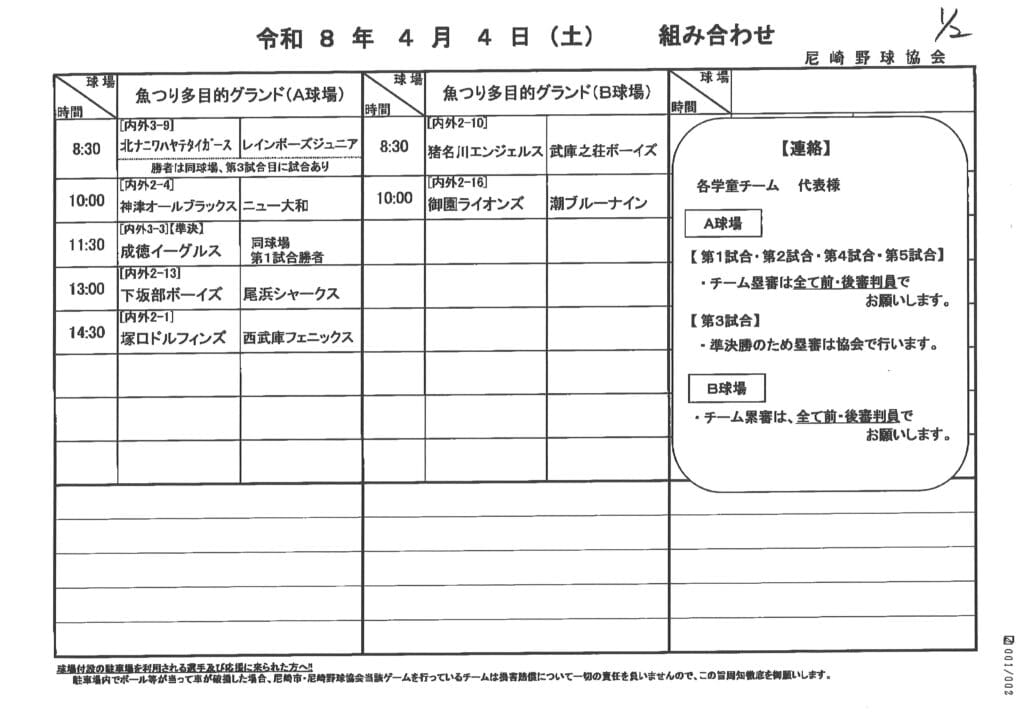 令和 8 年 4 月 4 日（土） 組み合わせ
1/2
尼崎野球協会
球場
時間
魚つり多目的グランド(A球場)
球場
時間
魚つり多目的グランド(B球場)
球場
時間
8:30
[内外3-9]
北ナニワハヤテタイガース レインボーズジュニア
勝者は同球場、第3試合目に試合あり
8:30
[内外2-10]
猪名川エンジェルス 武庫之荘ボーイズ
10:00
[内外2-4]
神津オールブラックス ニュー大和
10:00
[内外2-16]
御園ライオンズ 潮ブルーナイン
11:30
[内外3-3]【準決】
成徳イーグルス
同球場
第1試合勝者
13:00
[内外2-13]
下坂部ボーイズ 尾浜シャークス
14:30
[内外2-1]
塚口ドルフィンズ 西武庫フェニックス
【連絡】
各学童チーム 代表様
A球場
【第1試合・第2試合・第4試合・第5試合】
・チーム塁審は全て前・後審判員で
お願いします。
【第3試合】
・準決勝のため塁審は協会で行います。
B球場
・チーム累審は、全て前・後審判員で
お願いします。
球場付設の駐車場を利用される選手及び応援に来られた方へ!!
駐車場内でボール等が当って車が破損した場合、尼崎市・尼崎野球協会当該ゲームを行っているチームは損害賠償について一切の責任を負いませんので、この旨周知徹底を御願いします。
001/002